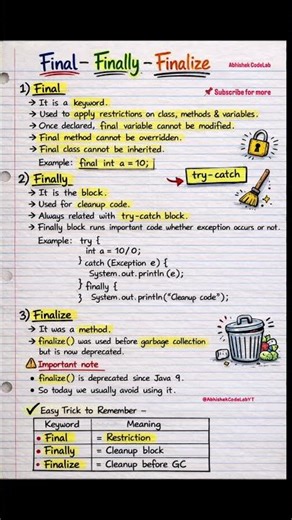 Final - Finally - Finalize
Abhishek CodeLab
Subscribe for more
1) Final
→ It is a keyword.
→ Used to apply restrictions on class, methods & variables.
→ Once declared, final variable cannot be modified.
→ Final method cannot be overridden.
→ Final class cannot be inherited.
Example: final int a = 10;
2) Finally
try-catch
→ It is the block.
→ Used for cleanup code.
→ Always related with try-catch block.
→ Finally block runs important code whether exception occurs or not.
Example: try {
int a = 10/0;
} catch (Exception e) {
System.out.println (e);
} finally {
} System.out.println("Cleanup code");
3) Finalize
→ It was a method.
→ finalize() was used before garbage collection
but is now deprecated.
Important note
• finalize() is deprecated since Java 9.
• So today we usually avoid using it.
@AbhishekCodeLabYT
✓ Easy Trick to Remember -
Keyword Meaning
• Final = Restriction
• Finally = Cleanup block
• Finalize = Cleanup before GC